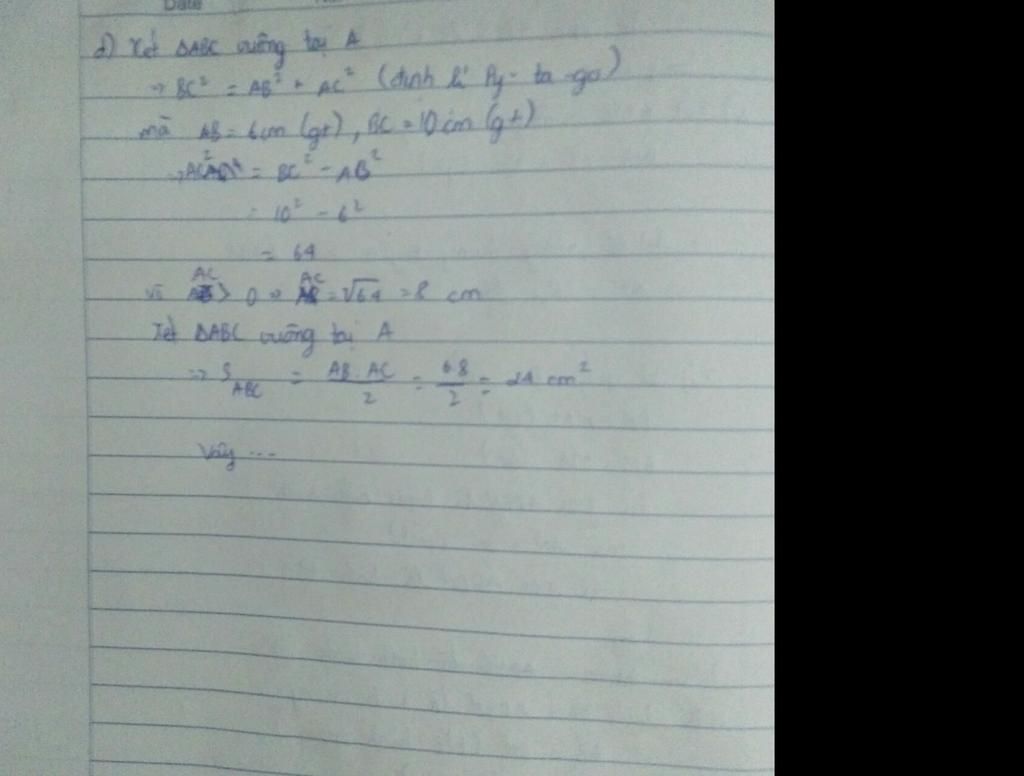 Date
d) Xét ΔABC vuông tại A
=> BC² = AB² + AC² (định lí Py-ta-go)
mà AB = 6cm (gt), BC = 10cm (gt)
=> AC² = BC² - AB²
= 10² - 6²
= 64
vì AC > 0 => AC = √64 = 8 cm
Xét ΔABC vuông tại A
=> S_ABC = AB.AC/2 = 6.8/2 = 24 cm²
Vậy ...